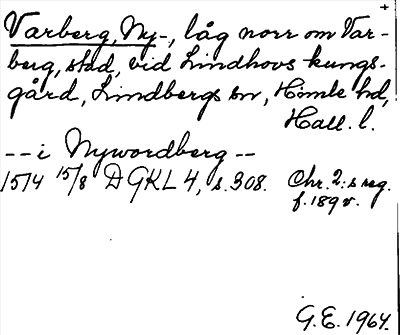 +
Varberg, Ny-, låg norr om Var-
berg, stad, vid Lindhovs kungs-
gård, Lindbergs sn, Himle hd,
Hall. l.
-- i Nywordberg --
1514 15/8 DGKL 4, s. 308. Chr. 2:s reg.
f. 189 v.
G.E. 1964.